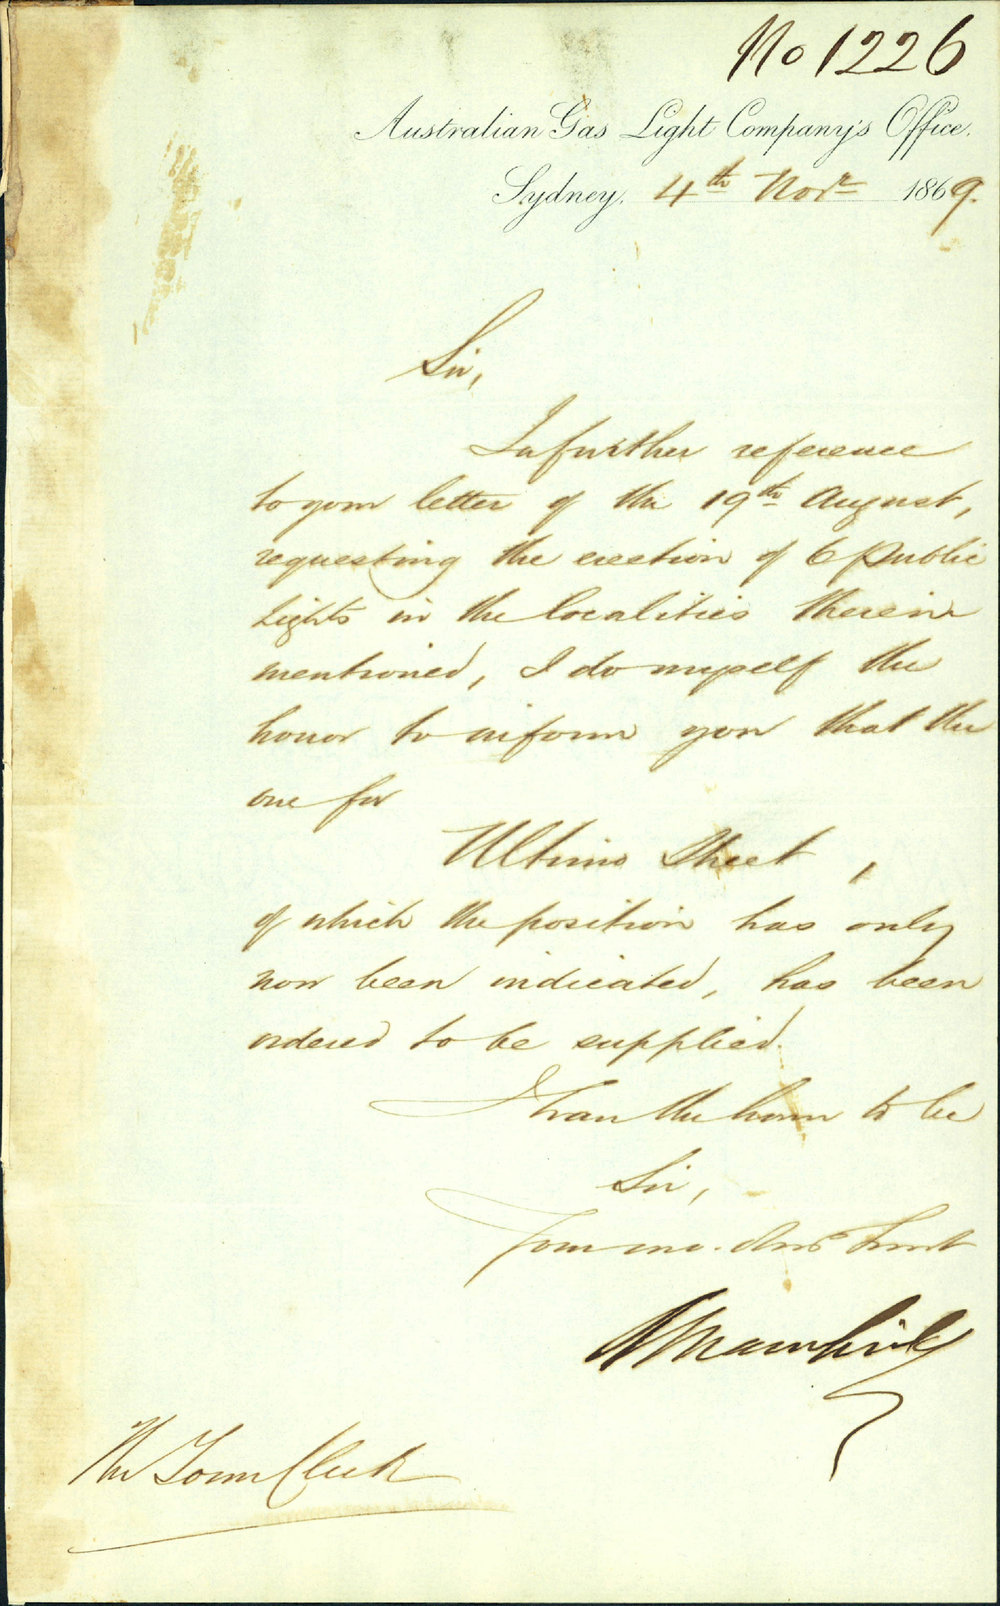 No 1226
Australian Gas Light Company's Office.
Sydney, 4th Novr 1869.
Sir,
In further reference
to your letter of the 19th August,
requesting the erection of 6 Public
Lights in the localities therein
mentioned, I do myself the
honor to inform you that the
one for
Ultimo Street,
of which the position has only
now been indicated, has been
ordered to be supplied.
I have the honor to be
Sir,
Your mo. Obdt Servt
The Town Clerk